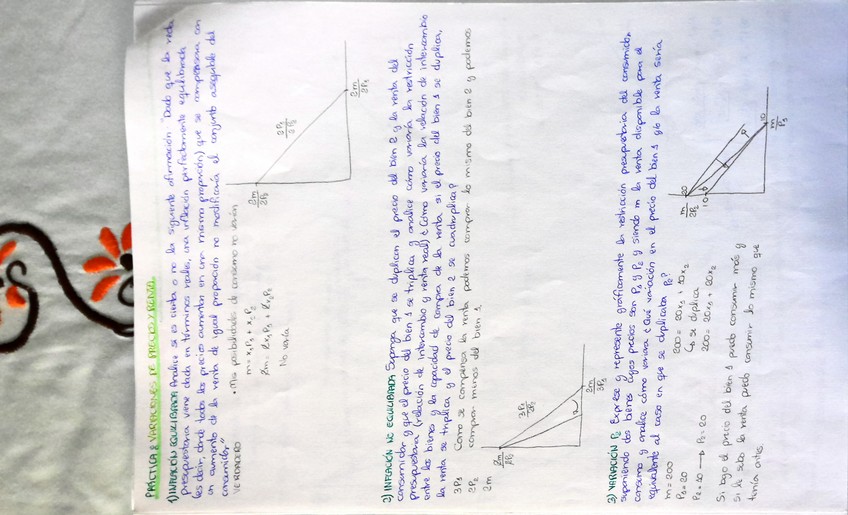 PRÁCTICA 2 VARIACIONES DE PRECIO Y RENTA
1) INFLACIÓN EQUILIBRADA Analice si es cierta o no la siguiente afirmación "Dado que la recta
presupuestaria viene dada en términos reales, una inflación perfectamente equilibrada
(es decir, donde todos los precios aumentan en una misma proporción) que se compensara con
un aumento de la renta de igual proporción no modificaría el conjunto asequible del
consumidor"
VERDADERO
• Mis posibilidades de consumo no varían
m = x1P1 + x2P2
2m = 2x1P1 + 2x2P2
No varía
2m
2P2
2P1
2P2
2m
2P1
2) INFLACIÓN NO EQUILIBRADA Suponga que se duplican el precio del bien 2 y la renta del
consumidor y que el precio del bien 1 se triplica y analice cómo variaría la restricción
presupuestaria (relación de intercambio y renta real) ¿Cómo variaría la relación de intercambio
entre los bienes y la capacidad de compra de la renta si el precio del bien 1 se duplica,
la renta se triplica y el precio del bien 2 se cuadruplica?
3P1
2P2
2m
Como se compensa la renta podemos comprar lo mismo del bien 2 y podemos
comprar menos del bien 1.
2m
2P2
3P1
2P2
2m
3P1
3) VARIACIÓN P2 Exprese y represente gráficamente la restricción presupuestaria del consumidor,
suponiendo dos bienes cuyos precios son P1 y P2 y siendo m la renta disponible para el
consumo y analice cómo variará ¿Qué variación en el precio del bien 1 y/o la renta sería
equivalente al caso en que se duplicaba P2?
m = 200
P1 = 20
P2 = 10 → P2 = 20
200 = 20x1 + 10x2
↳ se duplica
200 = 20x1 + 20x2
Si bajo el precio del bien 1 puedo consumir más y
si le subo la renta puedo consumir lo mismo que
tenía antes.
m
2P2
20
10
10
m
P1